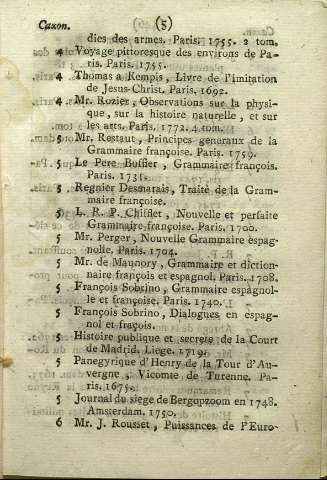 Caxon. (5)
dies des armes. Paris. 1755. 2 tom.
4 Voyage pittoresque des environs de Pa-
ris. Paris. 1755.
4 Thomas a Kempis, Livre de l'imitation
de Jesus-Christ. Paris. 1692.
4 Mr. Rozier, Observations sur la physi-
que, sur la histoire naturelle, et sur
les arts. Paris. 1772. 4. tom.
5 Mr. Restaut, Principes generaux de la
Grammaire françoise. Paris. 1759.
5 Le Pere Buffier, Grammaire françois.
Paris. 1731.
5 Regnier Desmarais, Traité de la Gram-
maire françoise.
5 L. R. P. Chifflet, Nouvelle et perfaite
Grammaire françoise. Paris. 1700.
5 Mr. Perger, Nouvelle Grammaire espag-
nolle. Paris. 1704.
5 Mr. de Maunory, Grammaire et diction-
naire françois et espagnol. Paris. 1708.
5 François Sobrino, Grammaire espagnol-
le et françoise. Paris. 1740.
5 François Sobrino, Dialogues en espag-
nol et fraçois.
5 Histoire publique et secrete de la Court
de Madrid. Liege. 1719.
5 Panegyrique d'Henry de la Tour d'Au-
vergne, Vicomte de Turenne. Pa-
ris. 1675.
5 Journal du siege de Bergopzoom en 1748.
Amsterdam. 1750.
6 Mr. J. Rousset, Puissances de l'Euro-